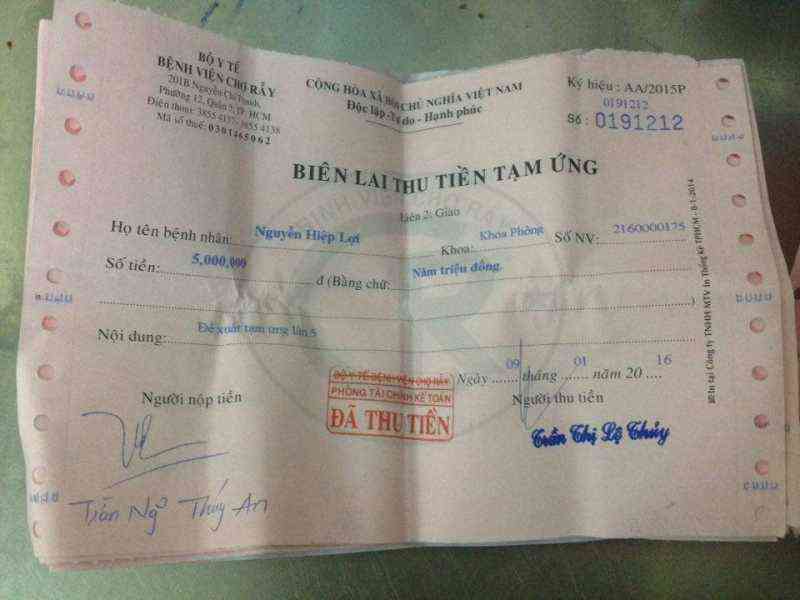 BỘ Y TẾ
BỆNH VIỆN CHỢ RẪY
201B Nguyễn Chí Thanh,
Phường 12, Quận 5, TP. HCM
Điện thoại: 3855 4137- 3855 4138
Mã số thuế: 0301465062
CỘNG HÒA XÃ HỘI CHỦ NGHĨA VIỆT NAM
Độc lập - Tự do - Hạnh phúc
Ký hiệu : AA/2015P
0191212
Số : 0191212
BIÊN LAI THU TIỀN TẠM ỨNG
Liên 2: Giao
Họ tên bệnh nhân: Nguyễn Hiệp Lợi Khoa: Khoa Phỏng Số NV: 2160000175
Số tiền: 5,000,000 đ (Bằng chữ: Năm triệu đồng.
)
Nội dung: Đề xuất tạm ứng lần 5
Ngày 09 tháng 01 năm 20 16
Người nộp tiền
Người thu tiền
BỘ Y TẾ BỆNH VIỆN CHỢ RẪY
PHÒNG TÀI CHÍNH KẾ TOÁN
ĐÃ THU TIỀN
Trần Thị Lệ Thủy
Trần Ngô Thúy An
In tại Công ty TNHH MTV In Thống Kê TP.HCM - 8-1-2014